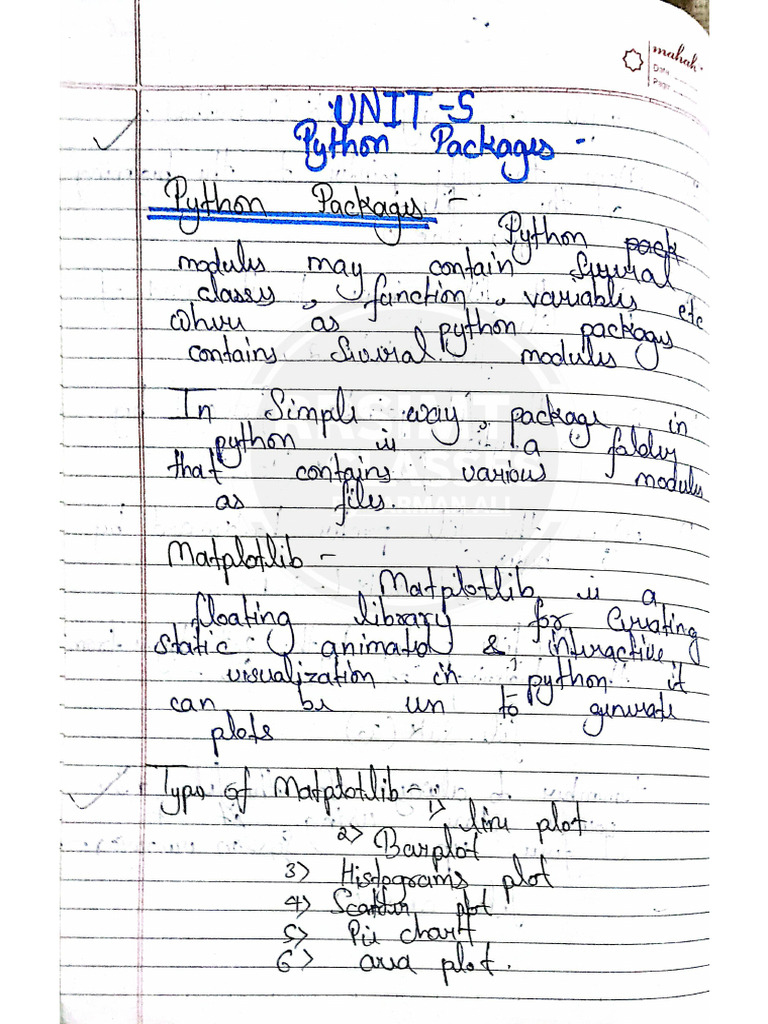 mahak
Date
Page
UNIT-5
Python Packages -
Python Packages -
Python pack
modules may contain Several
classes, function, variables etc
where as python packages
contains Several modules
In Simple way, package in
python is a folder
that contains various modules
as files.
Matplotlib -
Matplotlib is a
floating library for Creating
static animated & interactive
visualization in python. it
can be use to generate
plots
Type of Matplotlib -
1> line plot
2> Barplot
3> Histograms plot
4> Scatter plot
5> Pie chart
6> area plot.